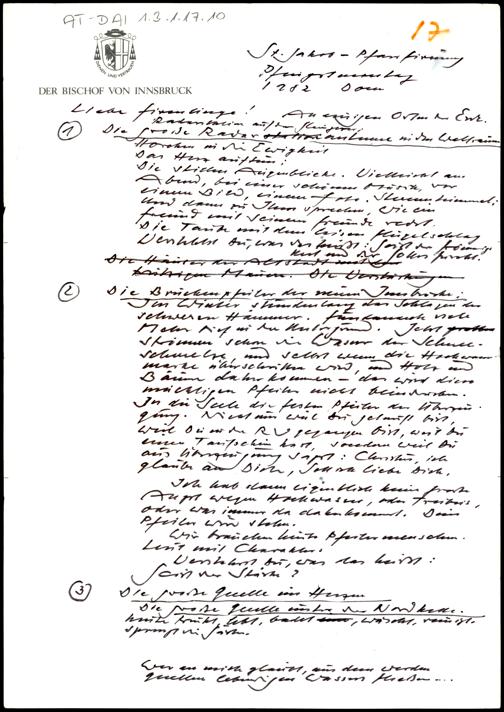 AT-DAI 1.3.1.17.10
17
DER BISCHOF VON INNSBRUCK
St. Jakob - Pfarrfirmung
Pfingstmontag
1982 Dom
Liebe Firmlinge! An einigen Orten der Erde
① Die große Radar in den Weltraum
Horchen in die Ewigkeit
Das Herz auftun!
Die stillen Augenblicke. Vielleicht am
Abend, bei einer schönen Musik, vor
einem Bild, einem Foto. Sternenhimmel:
Und dann zu Ihm sprechen, wie ein
Freund mit seinem Freunde redet.
Die Taube mit dem leisen Flügelschlag
Verstehst Du, was das heißt: Geist der
Die Häuser der Altstadt mit
Mauern. Die
② Die Brückenpfeiler der neuen Innbrücke:
Im Winter stundenlang das Schlagen des
schweren Hammers. viele
Meter tief in den Untergrund. Jetzt
strömen schon die Wasser der Schnee-
schmelze, und selbst wenn die Hochwasser-
marke überschritten wird, und Holz und
Bäume daherkommen - das wird diese
mächtigen Pfeiler nicht
In die Seele die festen Pfeiler der Überzeu-
gung. Nicht nur weil Du getauft bist,
weil Du in den RU gegangen bist, weil Du
einen Taufschein hast, sondern weil Du
aus Überzeugung sagst: Christus, ich
glaube an Dich, ich liebe Dich.
Ich hab dann eigentlich keine große
Angst wegen Hochwasser, oder Treibeis,
oder was immer da daherkommt. Dein
Pfeiler wird stehn.
Wir brauchen heute Pfeilermenschen.
Leut mit Charakter.
Verstehst Du, was das heißt:
Geist der Stärke?
③ Die große Quelle im Herzen
Die große Quelle unter der Nordkette.
heute trinkt, lebt, badet, wäscht, reinigt
springt im Garten.
Wer an mich glaubt, aus dem werden
Quellen lebendigen Wassers fließen...